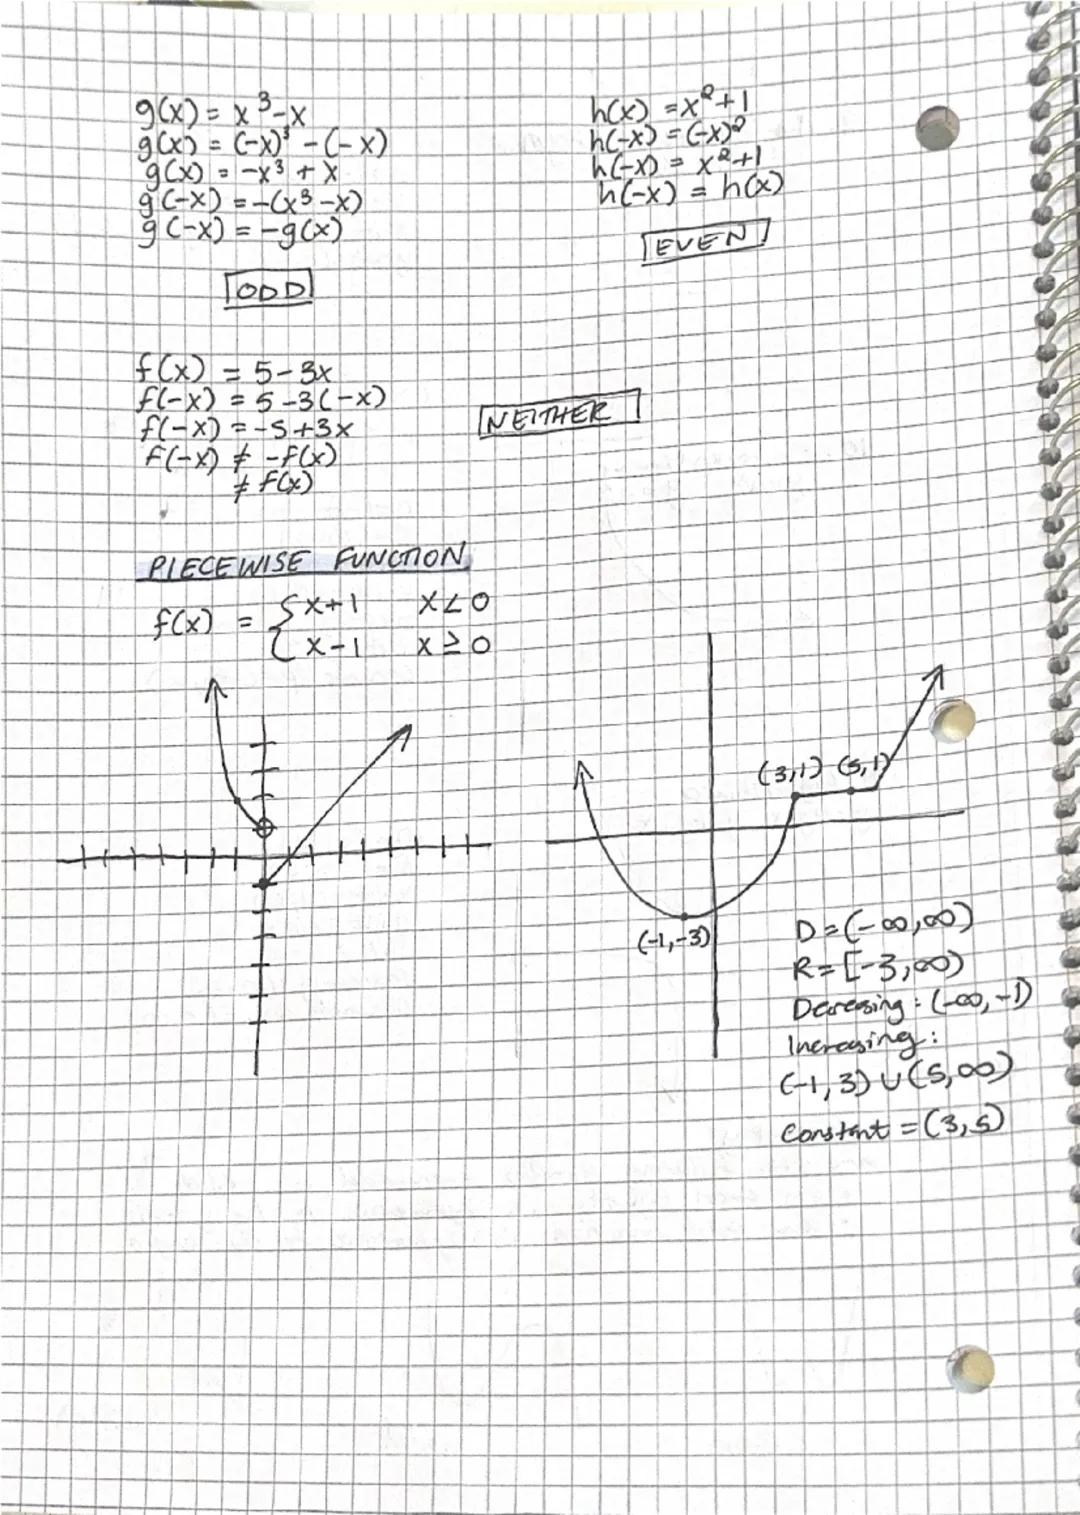 g(x) = x³-x
g(x) = (-x)³ - (-x)
g(x) = -x³ + x
g(-x) = -(x³-x)
g(-x) = -g(x)
ODD
h(x) = x²+1
h(-x) = (-x)²
h(-x) = x²+1
h(-x) = h(x)
EVEN
f(x) = 5-3x
f(-x) = 5-3(-x)
f(-x) = -5+3x
f(-x) ≠ -f(x)
≠ f(x)
NEITHER
PIECEWISE FUNCTION
f(x) = { x+1 x<0
x-1 x≥0
(3,1) (5,1)
(-1,-3)
D=(-∞,∞)
R=[-3,∞)
Decreasing: (-∞,-1)
Increasing:
(-1,3)∪(5,∞)
Constant = (3,5)